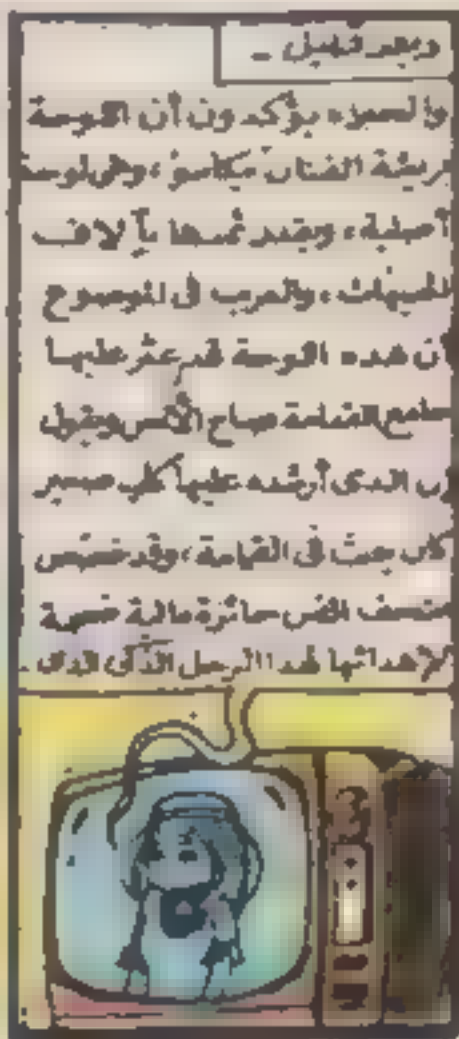 وبعد قليل ..
والخبراء يؤكدون أن اللوحة
بريشة الفنان بيكاسو، وهي لوحة
أصلية، ويقدر ثمنها بآلاف
الجنيهات، والغريب في الموضوع
أن هذه اللوحة قد عثر عليها
جامع القمامة صباح الأمس ويقول
إن الذي أرشده عليها كلب صغير
كان يبحث في القمامة، وقد خصص
متحف الفن جائزة مالية ضخمة
لإهدائها لهذا الرجل الذكي الذي ..